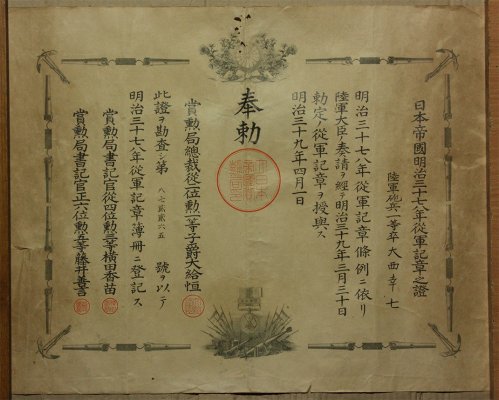 日本帝國明治三十七八年從軍記章之證
陸軍砲兵一等卒大西幸七
明治三十七八年從軍記章條例ニ依リ
陸軍大臣ノ奏請ヲ經テ明治三十九年三月三十日
勅定ノ從軍記章ヲ授與ス
明治三十九年四月一日
奉勅
賞勲局總裁從二位勲一等子爵大給恒
此證ヲ勘査シ第八七貳貳六五號ヲ以テ
明治三十七八年從軍記章簿冊ニ登記ス
賞勲局書記官從四位勲三等橫田香苗
賞勲局書記官正六位勲五等藤井善言